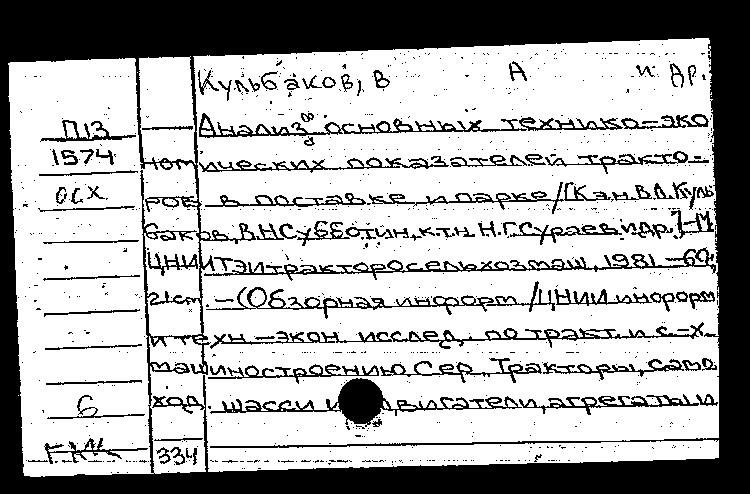 Кульбаков, В А и др.
П13 Анализ основных технико-эко
1574 номических показателей тракто-
осх ров в поставке и парке /[К.э.н. В.А. Куль
баков, В.Н Субботин, к.т.н. Н.Г. Сураев и др.]-М
ЦНИИТЭИтракторосельхозмаш, 1981 -60,
21cm. -(Обзорная информ /ЦНИИ информ
и техн -экон. исслед. по тракт. и с-х.
машиностроению. Сер. Тракторы, само
6 ход. шасси и двигатели, агрегаты и
334